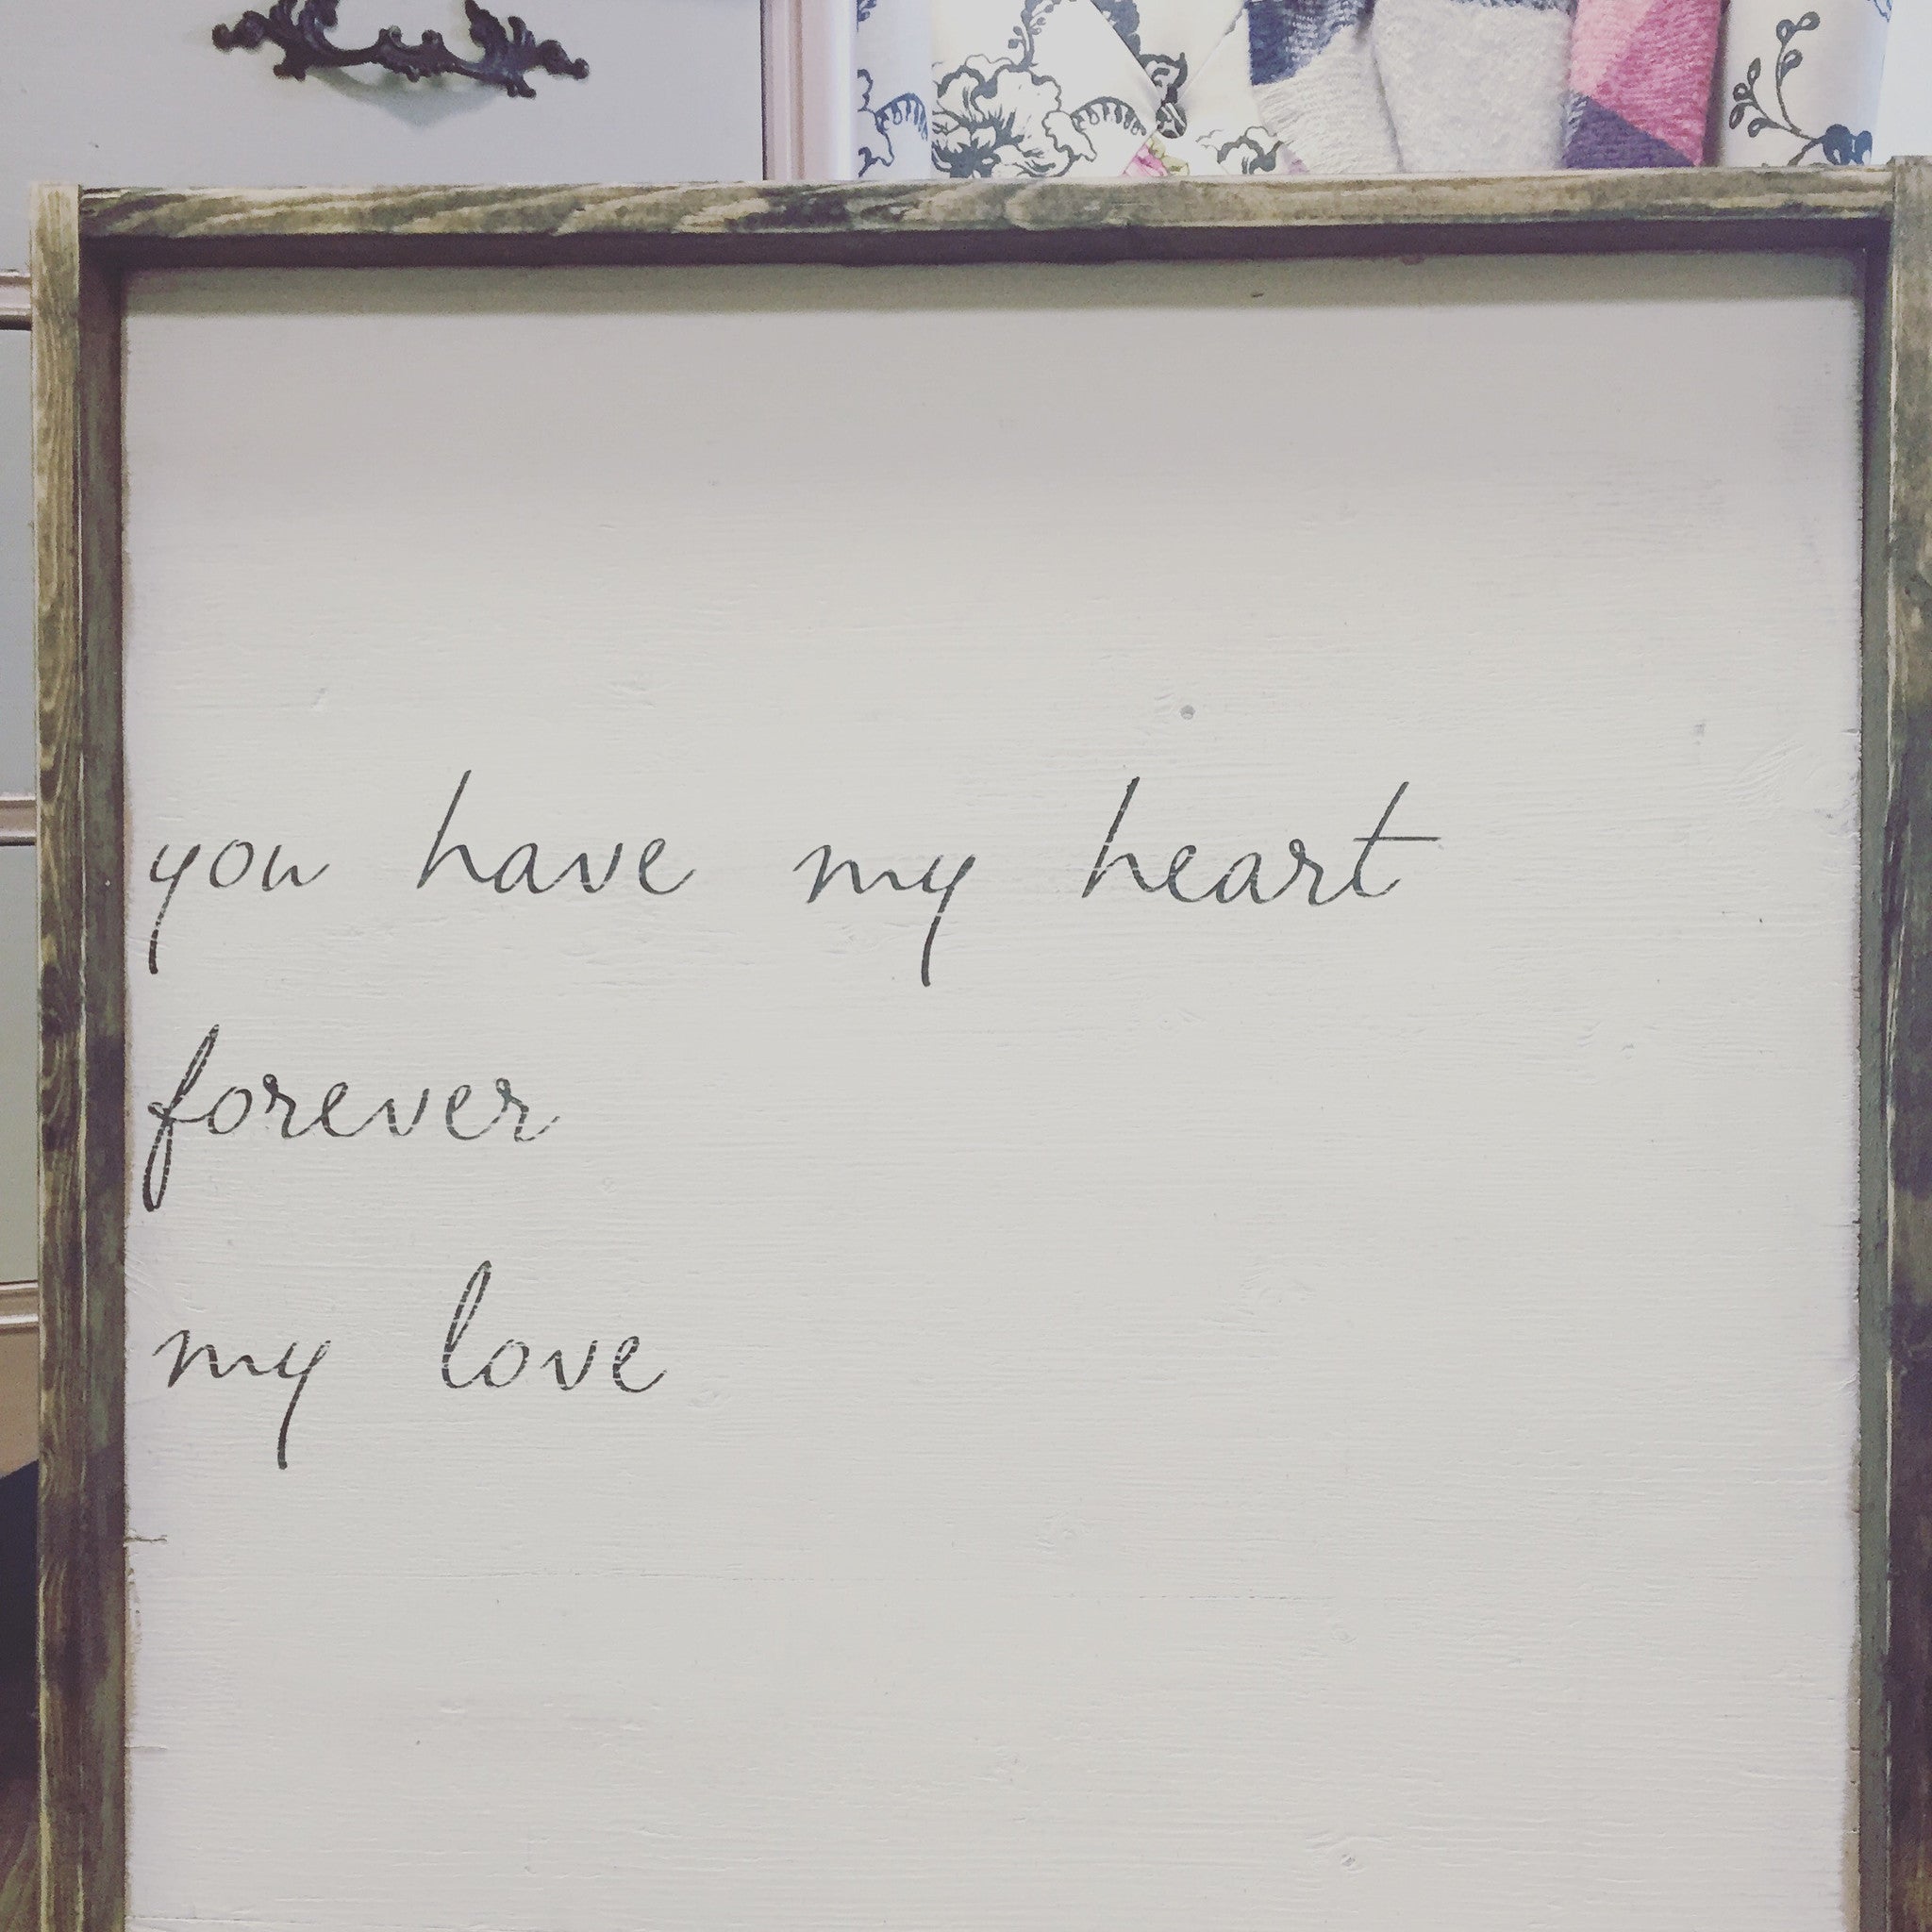 you have my heart
forever
my love